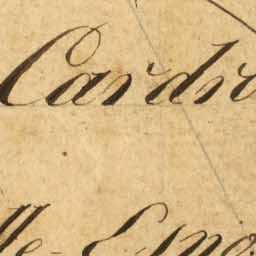 Cardr
lle-Esno